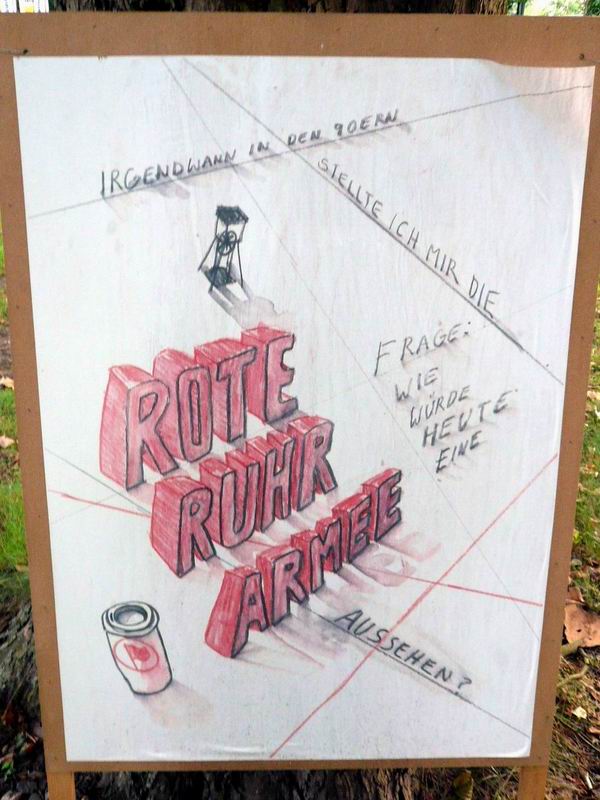 IRGENDWANN IN DEN 90ERN
STELLTE ICH MIR DIE
FRAGE:
WIE
WÜRDE
HEUTE
EINE
ROTE
RUHR
ARMEE
AUSSEHEN?